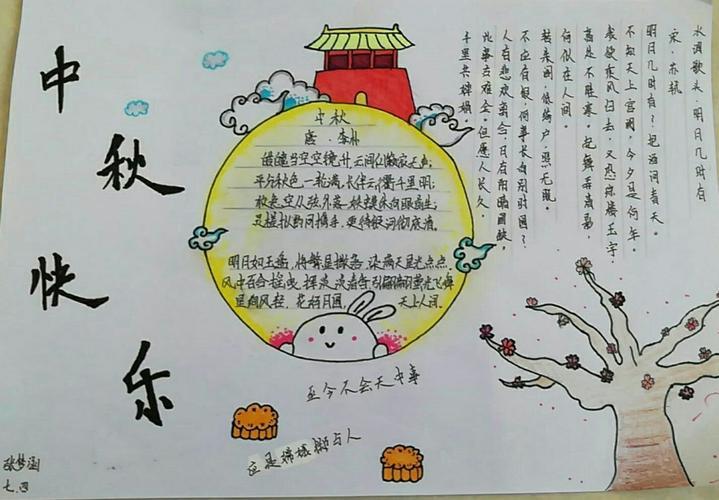 中秋快乐
水调歌头·明月几时有
宋·苏轼
明月几时有?把酒问青天。
不知天上宫阙,今夕是何年。
我欲乘风归去,又恐琼楼玉宇,
高处不胜寒。起舞弄清影,
何似在人间。
转朱阁,低绮户,照无眠。
不应有恨,何事长向别时圆?
人有悲欢离合,月有阴晴圆缺,
此事古难全。但愿人长久,
千里共婵娟。
中秋
唐·李朴
皓魄当空宝镜升,云间仙籁寂无声;
平分秋色一轮满,长伴云衢千里明;
狡兔空从弦外落,妖蟆休向眼前生;
灵槎拟约同携手,更待银河彻底清。
明月如玉盘,将繁星撒落,染满天星光点点
风中百合摇曳
花好月圆 天上人间.
至今不会天中事
应是嫦娥掷与人
张梦涵
七.四